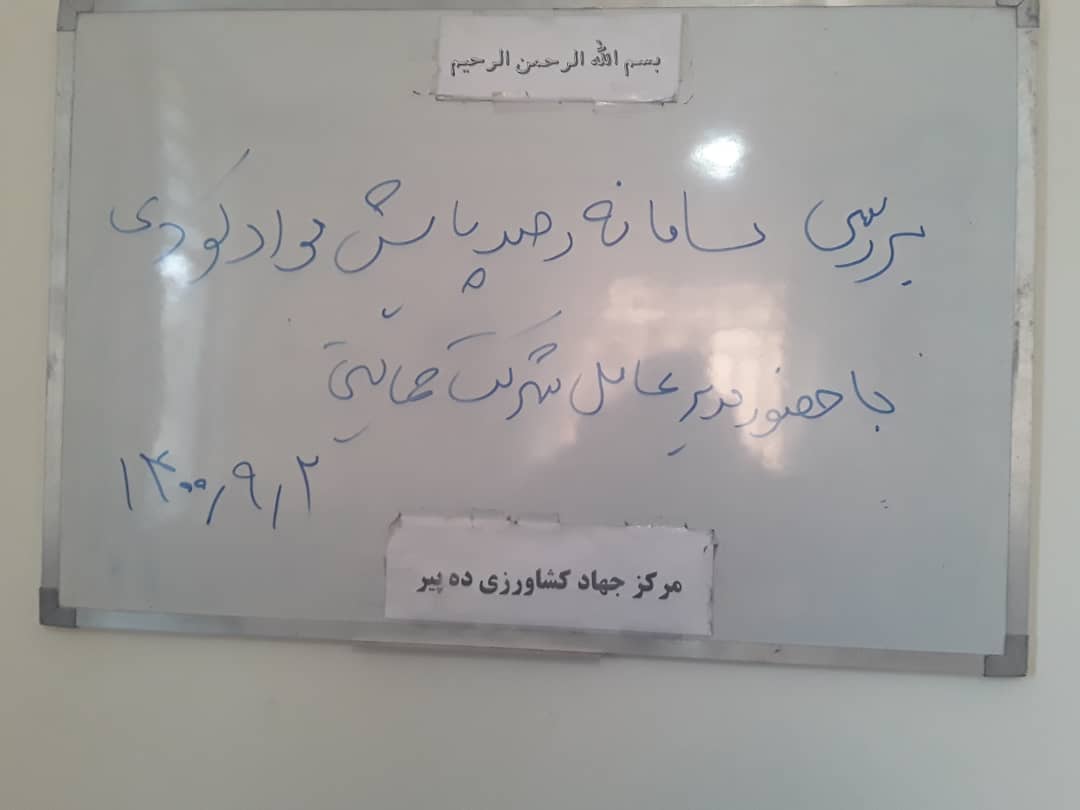 بسم الله الرحمن الرحیم
بررسی سامانه رصد پایش مواد کودی
با حضور مدیر عامل شرکت حمایتی
۱۴۰۰٫۹٫۲
مرکز جهاد کشاورزی ده پیر